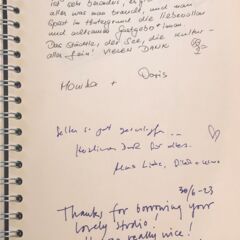 ist sehr besonders, es gi
alles was man braucht, und man
spürt im Hintergrund die liebevollen
und achtsamen Gastgeber*innen.
Das Städtle, der See, die Kultur -
alles fein! VIELEN DANK
Monika + Doris
so gut
Herzlichen Dank für alles.
Alles Liebe,
30/6-23
Thanks for borrowing your
lovely studio!
really nice!